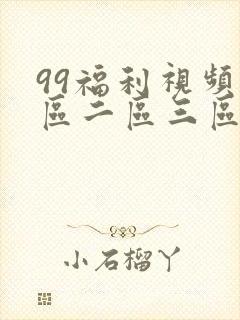 99福利視頻
區二區三區
小石榴丫